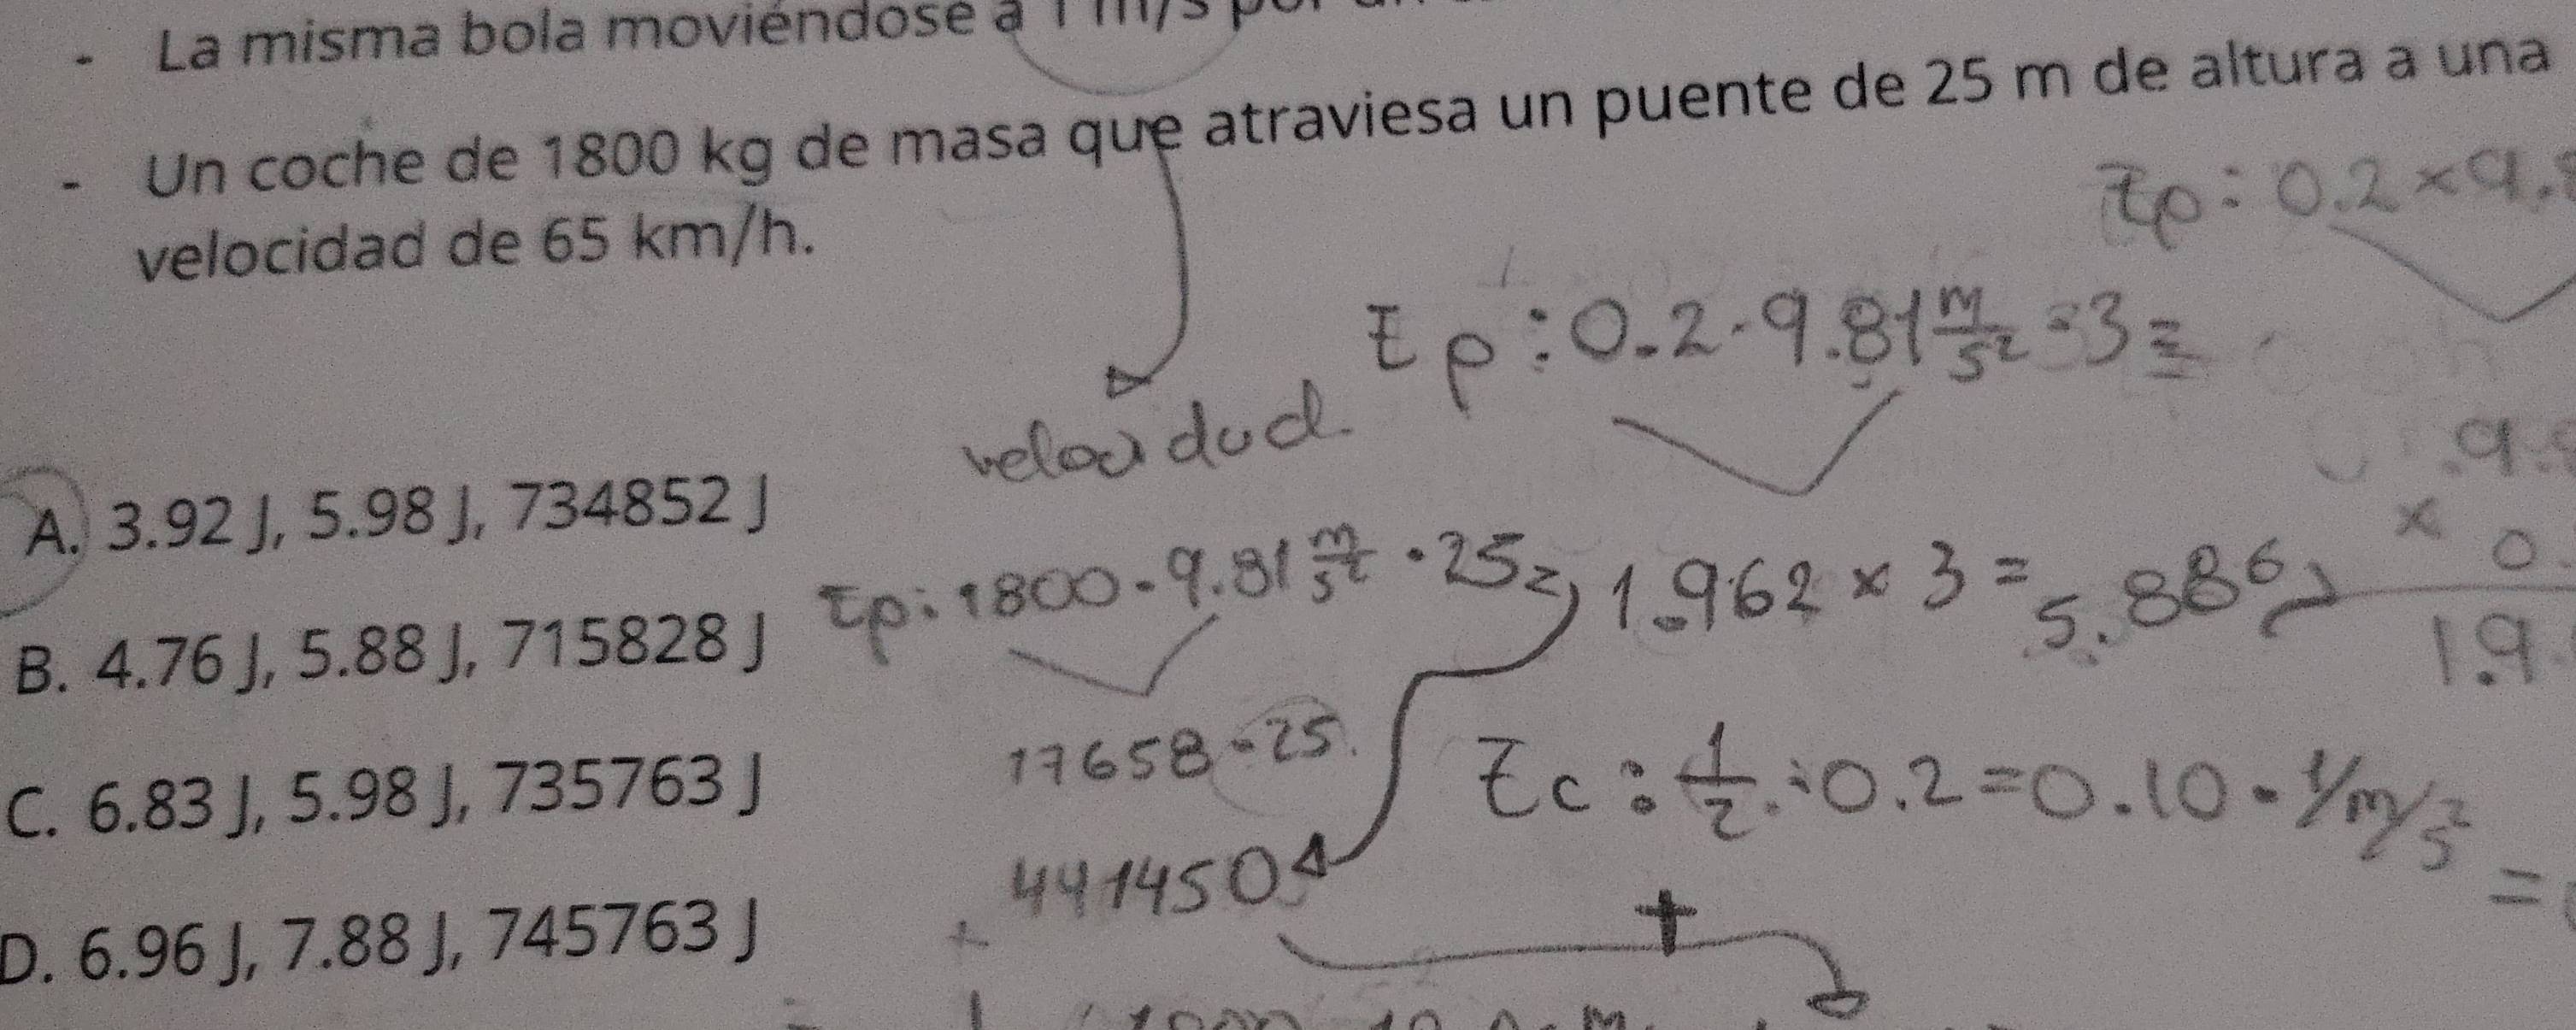 - La misma bola moviéndose a 1 m/s
- Un coche de 1800 kg de masa que atraviesa un puente de 25 m de altura a una
velocidad de 65 km/h.
Ep: 0.2 × 9.
Ep: 0.2 · 9.81 m/s² · 3 =
velocidad
A. 3.92 J, 5.98 J, 734852 J
Ep: 1800 · 9.81 m/s² · 25 =
1.962 × 3 = 5.886 J
B. 4.76 J, 5.88 J, 715828 J
17658 · 25
C. 6.83 J, 5.98 J, 735763 J
Ec: 1/2 · 0.2 = 0.10 · 1 m/s² =
441450
+
D. 6.96 J, 7.88 J, 745763 J